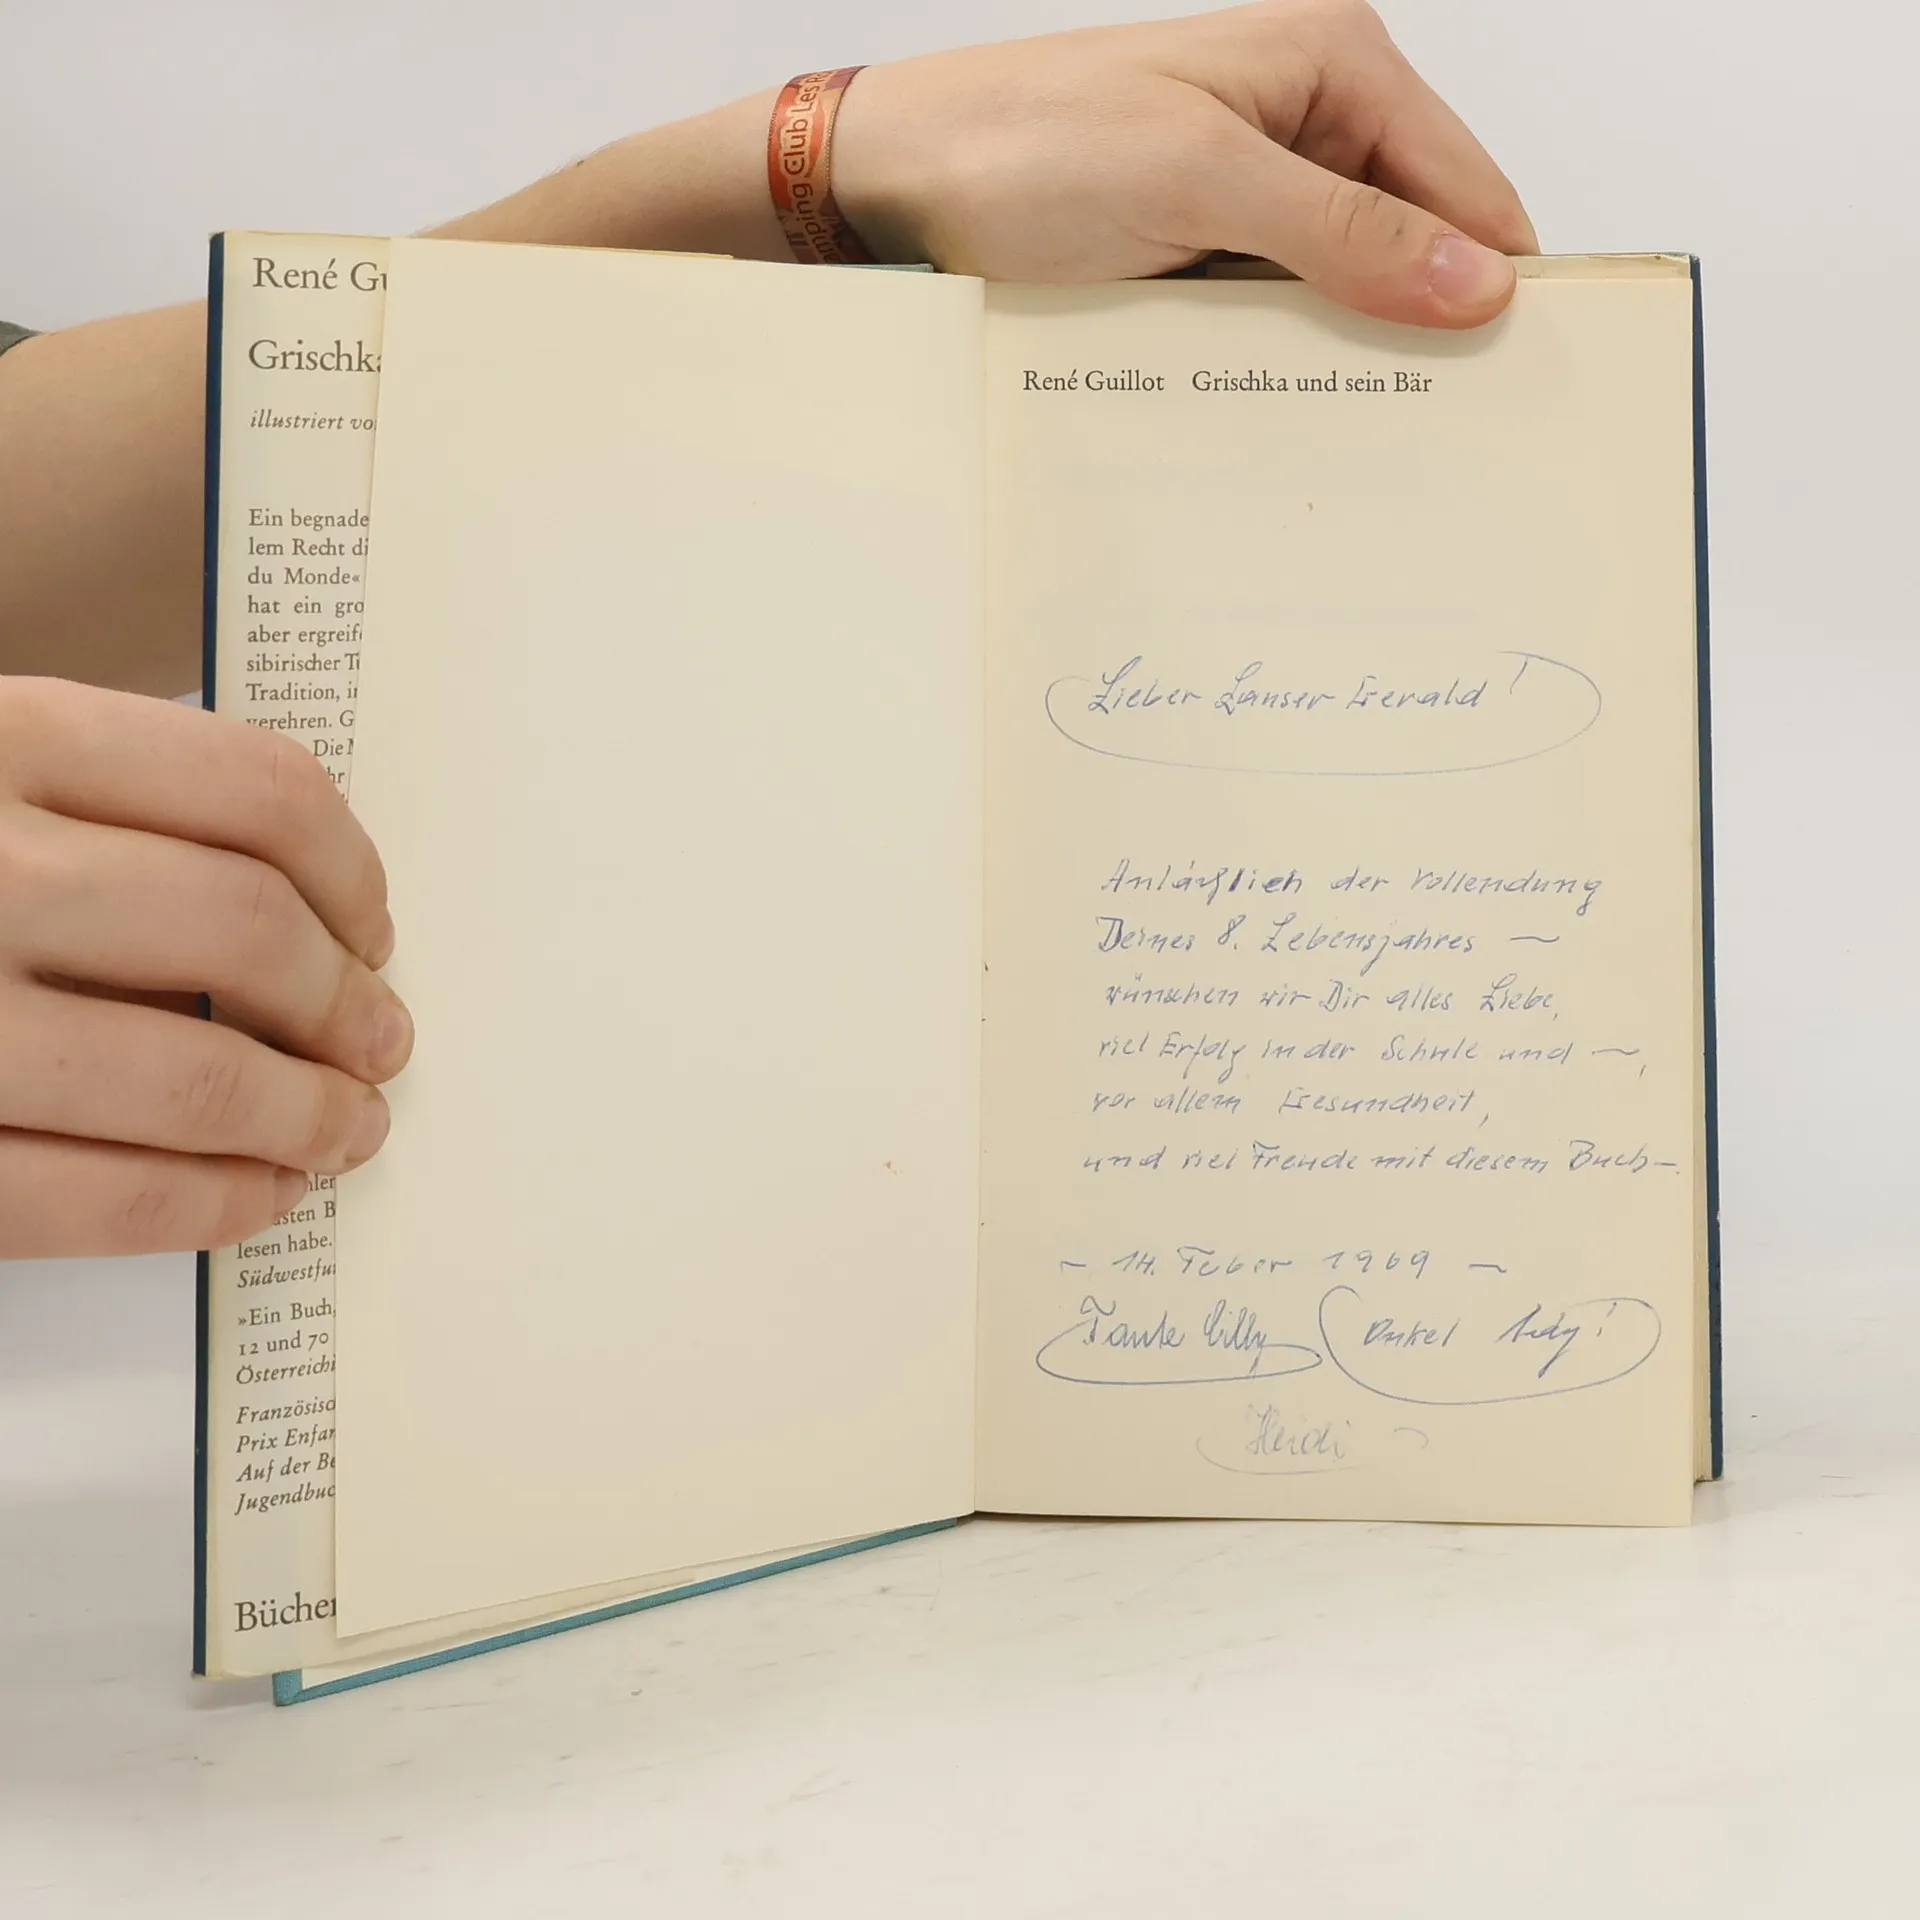 Camping Club Les
René Gu
Grischka
illustriert vo
Ein begnade
lem Recht di
du Monde«
hat ein gro
aber ergreif
sibirischer Ti
Tradition, i
verehren. G
Die M
hr
hler
sten B
lesen habe.
Südwestfu
»Ein Buch,
12 und 70
Österreichi
Französisc
Prix Enfan
Auf der Be
Jugendbuc
Bücher
René Guillot Grischka und sein Bär
Lieber Lanser Gerald!
Anläßlich der Vollendung
Deines 8. Lebensjahres —
wünschen wir Dir alles Liebe,
viel Erfolg in der Schule und —,
vor allem Gesundheit,
und viel Freude mit diesem Buch —.
- 14. Feber 1969 -
Tante Cilly Onkel !
Heidi